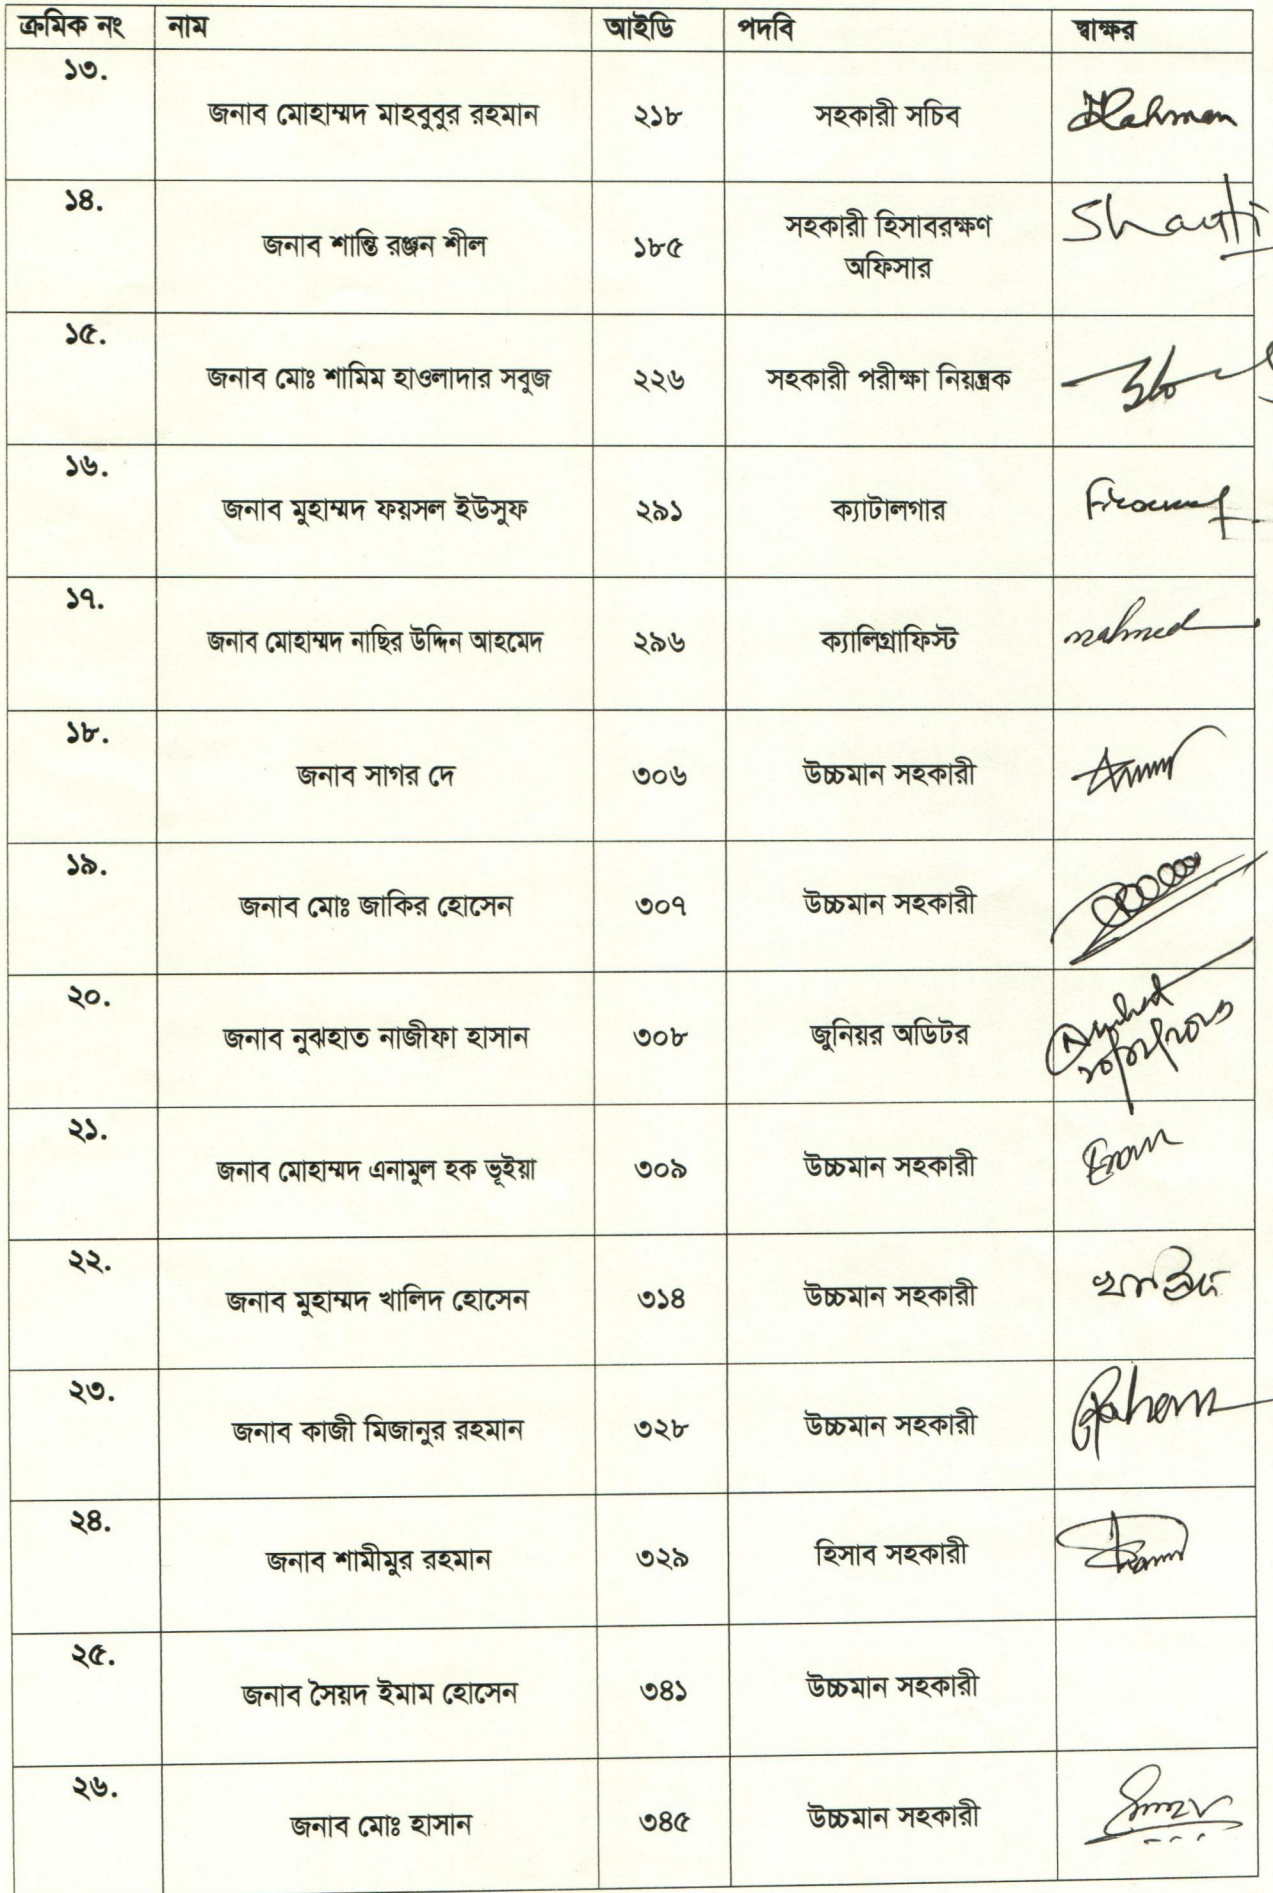 ক্রমিক নং নাম আইডি পদবি স্বাক্ষর
১৩. জনাব মোহাম্মদ মাহবুবুর রহমান ২১৮ সহকারী সচিব Rahman
১৪. জনাব শান্তি রঞ্জন শীল ১৮৫ সহকারী হিসাবরক্ষণ
অফিসার Shanti
১৫. জনাব মোঃ শামিম হাওলাদার সবুজ ২২৬ সহকারী পরীক্ষা নিয়ন্ত্রক
১৬. জনাব মুহাম্মদ ফয়সল ইউসুফ ২৯১ ক্যাটালগার
১৭. জনাব মোহাম্মদ নাছির উদ্দিন আহমেদ ২৯৬ ক্যালিগ্রাফিস্ট
১৮. জনাব সাগর দে ৩০৬ উচ্চমান সহকারী
১৯. জনাব মোঃ জাকির হোসেন ৩০৭ উচ্চমান সহকারী
২০. জনাব নুঝহাত নাজীফা হাসান ৩০৮ জুনিয়র অডিটর
২১. জনাব মোহাম্মদ এনামুল হক ভূইয়া ৩০৯ উচ্চমান সহকারী
২২. জনাব মুহাম্মদ খালিদ হোসেন ৩১৪ উচ্চমান সহকারী খালিদ
২৩. জনাব কাজী মিজানুর রহমান ৩২৮ উচ্চমান সহকারী
২৪. জনাব শামীমুর রহমান ৩২৯ হিসাব সহকারী
২৫. জনাব সৈয়দ ইমাম হোসেন ৩৪১ উচ্চমান সহকারী
২৬. জনাব মোঃ হাসান ৩৪৫ উচ্চমান সহকারী